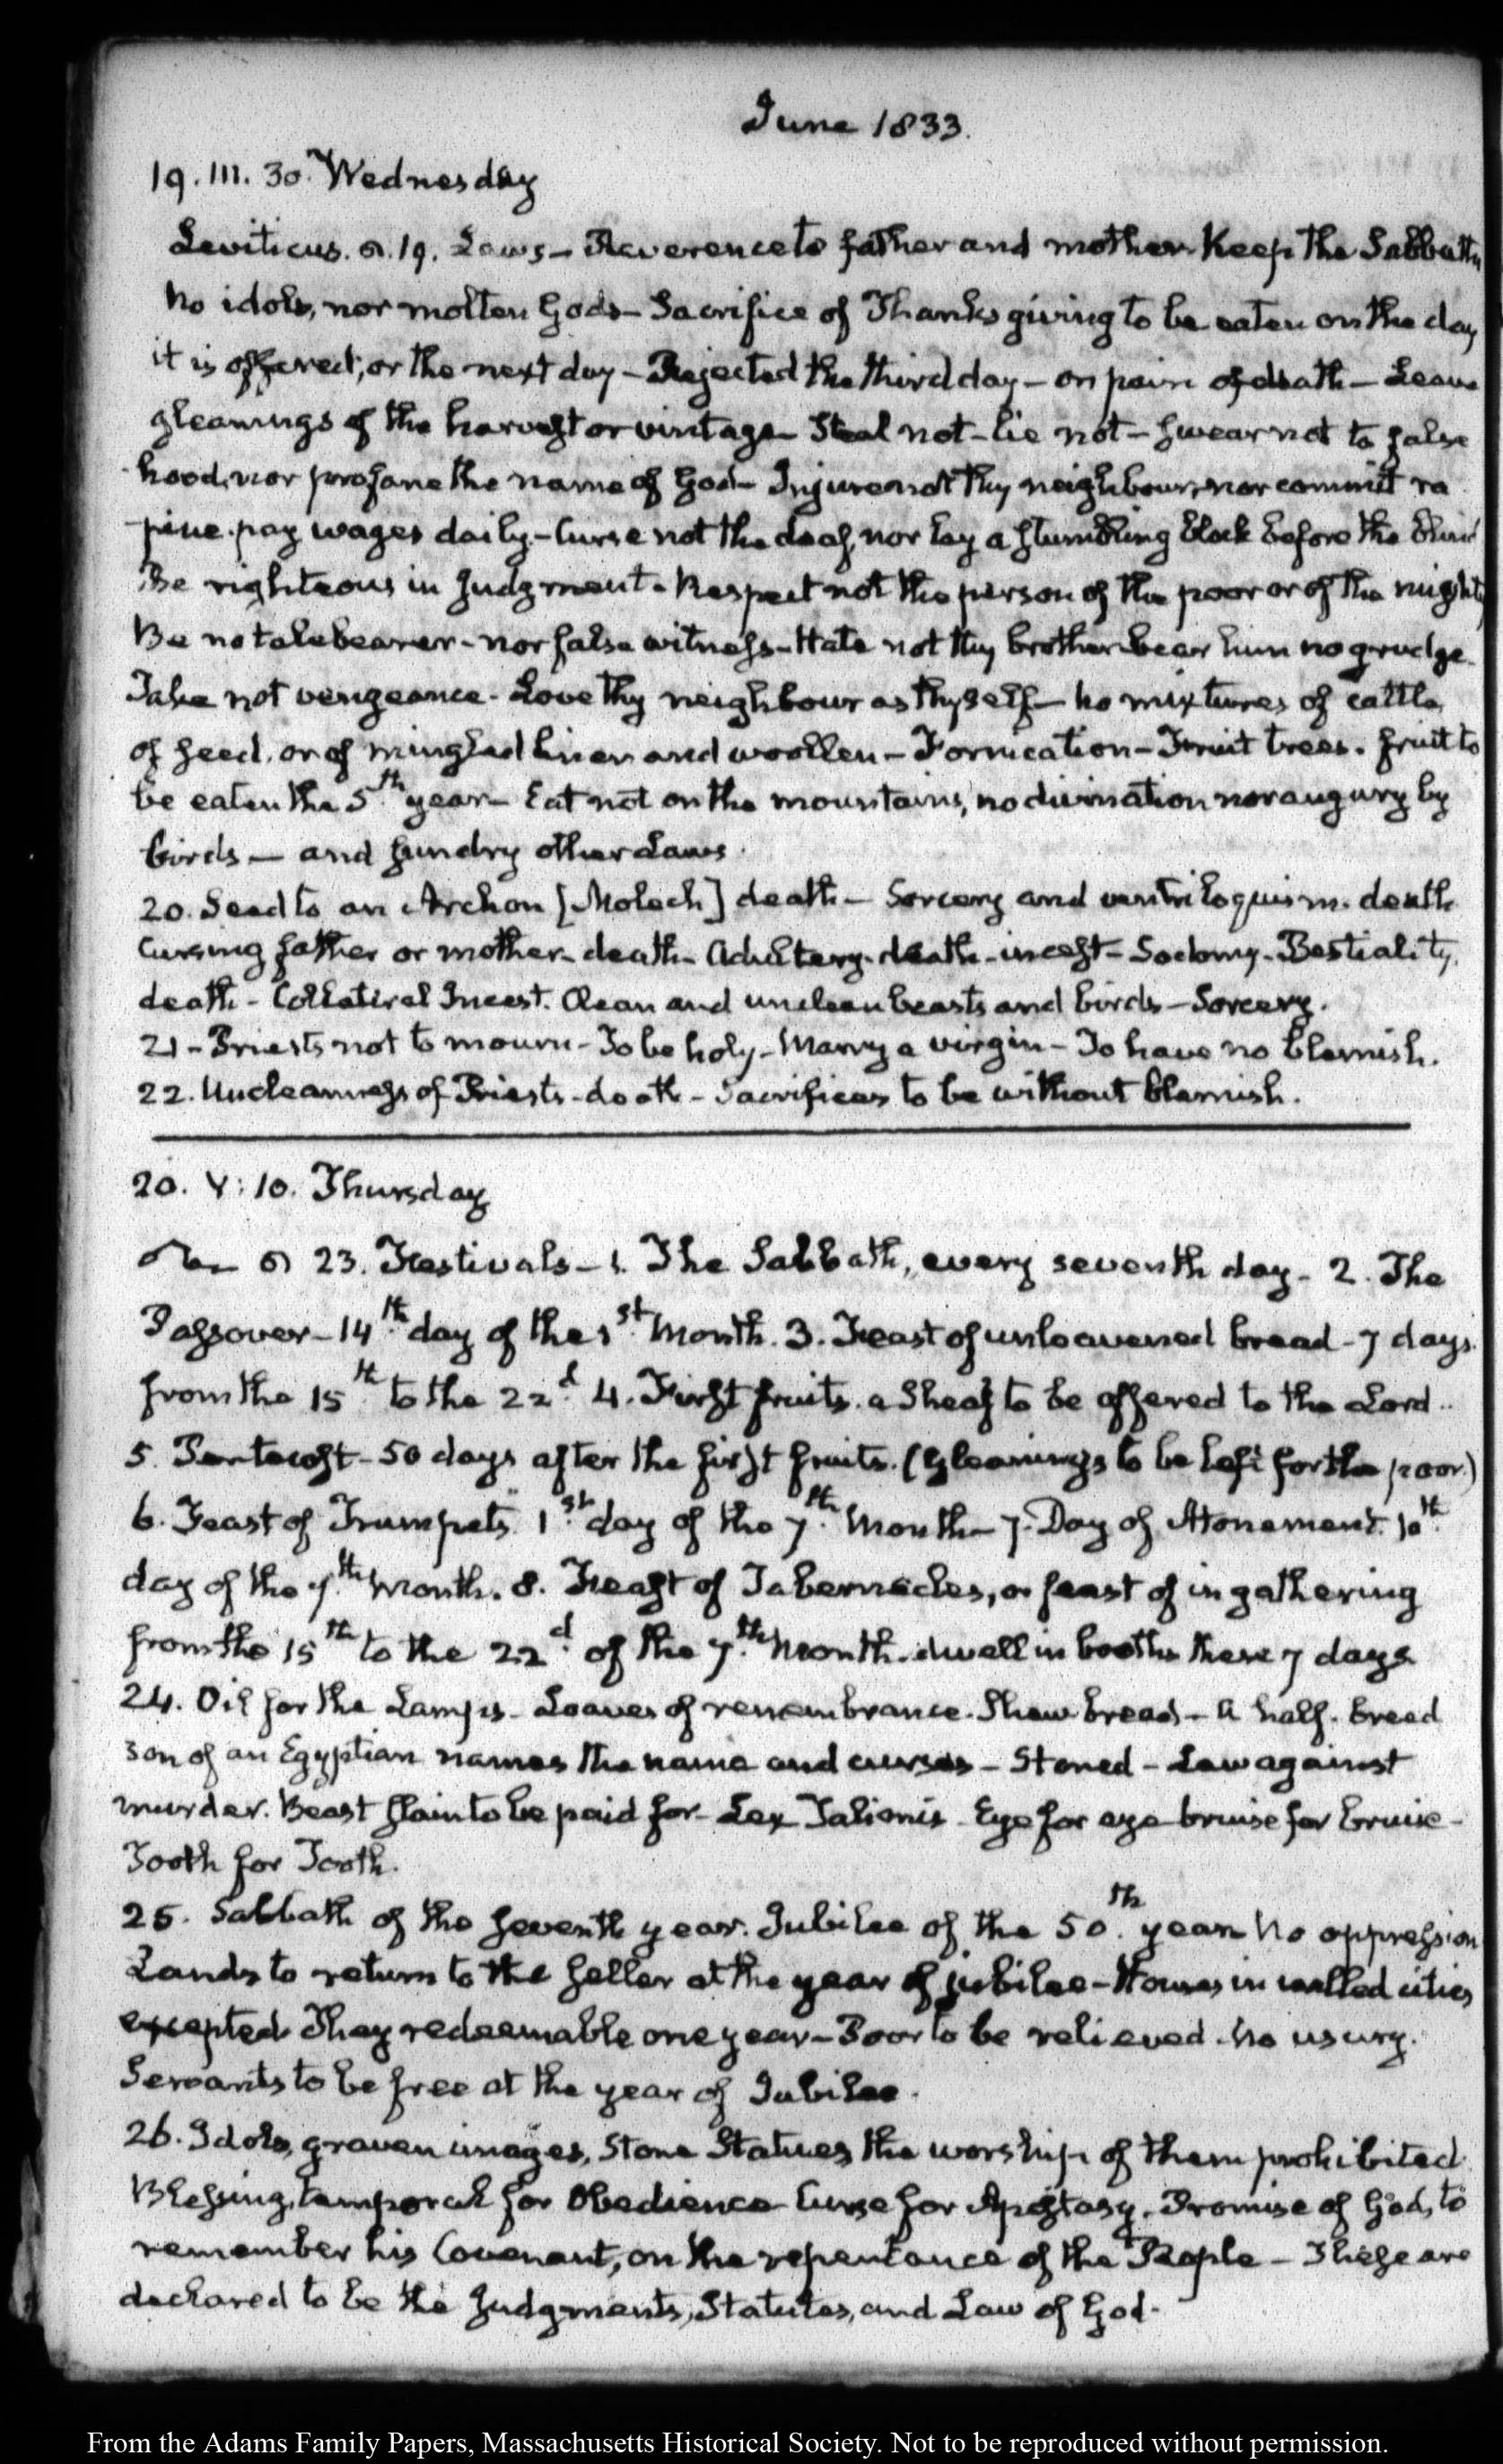 June 1833.
19. III. 30. Wednesday
Leviticus. 19. Laws – Reverence to father and mother. Keep the Sabbath
No idols, nor molten Gods – Sacrifice of Thanksgiving to be eaten on the day
it is offered; or the next day – Rejected the third day – on pain of death – Leave
gleanings of the harvest or vintage – Steal not – lie not – swear not to false
hood, nor profane the name of God – Injure not thy neighbour, nor commit ra
pine. pay wages daily. – Curse not the deaf, nor lay a stumbling block before the blind
Be righteous in Judgment. Respect not the person of the poor or of the mighty
Be no talebearer – nor false witness – Hate not thy brother bear him no grudge.
Take not vengeance – Love thy neighbour as thyself – no mixtures of cattle,
of seed, or of mingled linen and woollen – Fornication – Fruit trees. fruit to
be eaten the 5th year – Eat not on the mountains, no divination nor augury by
birds – and sundry other Laws.
20. Seed to an Archon [Moloch] death – Sorcery and ventriloquism. death
Cursing father or mother – death – Adultery – death – incest – Sodomy – Bestiality.
death – Collateral Incest. Clean and unclean beasts and birds – Sorcery.
21 – Priests not to mourn – To be holy – Marry a virgin – To have no blemish.
22. Uncleanness of Priests – death – Sacrifices to be without blemish.
20. V: 10. Thursday
23. Festivals – 1. The Sabbath, every seventh day – 2. The
Passover – 14th day of the 1st Month. 3. Feast of unleavened bread – 7 days.
from the 15th to the 22d 4. First fruits. a Sheaf to be offered to the Lord..
5. Pentecost – 50 days after the first fruits. (Gleanings to be left for the poor.)
6. Feast of Trumpets 1st day of the 7th Month – 7. Day of Atonement. 10th
day of the 7th Month. 8. Feast of Tabernacles, or feast of in gathering
from the 15th to the 22d of the 7th Month. dwell in booths these 7 days
24. Oil for the Lamps – Loaves of remembrance. Shew bread – A half-breed
son of an Egyptian names the name and curses – Stoned – Law against
murder. Beast slain to be paid for – Lex Talionis – Eye for eye bruise for bruise –
Tooth for Tooth.
25. Sabbath of the seventh year. Jubilee of the 50th year. No oppression
Lands to return to the seller at the year of jubilee – Houses in walled cities
excepted. They redeemable one year – Poor to be relieved. No usury.
Servants to be free at the year of Jubilee.
26. Idols, graven images, Stone Statues, the worship of them prohibited
Blessing, temporal for Obedience Curse for Apostasy. Promise of God, to
remember his Covenant, on the repentance of the People – These are
declared to be the Judgments, Statutes, and Law of God.
From the Adams Family Papers, Massachusetts Historical Society. Not to be reproduced without permission.